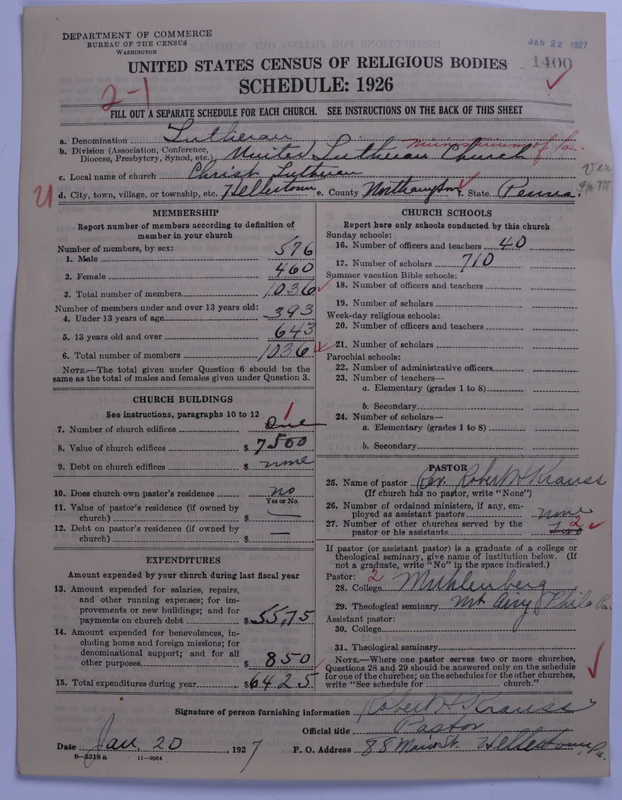 DEPARTMENT OF COMMERCE
BUREAU OF THE CENSUS
WASHINGTON
JAN 22 1927
UNITED STATES CENSUS OF RELIGIOUS BODIES
1400
SCHEDULE: 1926
2-1
FILL OUT A SEPARATE SCHEDULE FOR EACH CHURCH. SEE INSTRUCTIONS ON THE BACK OF THIS SHEET
a. Denomination Lutheran
b. Division (Association, Conference, Diocese, Presbytery, Synod, etc.) United Lutheran Church
c. Local name of church Christ Lutheran
d. City, town, village, or township, etc. Hellertown e. County Northampton f. State Penna.
MEMBERSHIP
Report number of members according to definition of member in your church
Number of members, by sex:
1. Male 576
2. Female 460
3. Total number of members 1036
Number of members under and over 13 years old:
4. Under 13 years of age 393
5. 13 years old and over 643
6. Total number of members 1036
NOTE.—The total given under Question 6 should be the same as the total of males and females given under Question 3.
CHURCH BUILDINGS
See instructions, paragraphs 10 to 12
7. Number of church edifices One 1
8. Value of church edifices $ 7500
9. Debt on church edifices $ none
10. Does church own pastor's residence no
Yes or No
11. Value of pastor's residence (if owned by church) $ —
12. Debt on pastor's residence (if owned by church) $ —
EXPENDITURES
Amount expended by your church during last fiscal year
13. Amount expended for salaries, repairs, and other running expenses; for improvements or new buildings; and for payments on church debt $ 5575
14. Amount expended for benevolences, including home and foreign missions; for denominational support; and for all other purposes $ 850
15. Total expenditures during year $ 6425
CHURCH SCHOOLS
Report here only schools conducted by this church
Sunday schools:
16. Number of officers and teachers 40
17. Number of scholars 710
Summer vacation Bible schools:
18. Number of officers and teachers
19. Number of scholars
Week-day religious schools:
20. Number of officers and teachers
21. Number of scholars
Parochial schools:
22. Number of administrative officers
23. Number of teachers—
a. Elementary (grades 1 to 8)
b. Secondary
24. Number of scholars—
a. Elementary (grades 1 to 8)
b. Secondary
PASTOR
25. Name of pastor Rev. Robert H Krauss
(If church has no pastor, write "None")
26. Number of ordained ministers, if any, employed as assistant pastors none
27. Number of other churches served by the pastor or his assistants 2
If pastor (or assistant pastor) is a graduate of a college or theological seminary, give name of institution below. (If not a graduate, write "No" in the space indicated.)
Pastor: 2
28. College Muhlenberg
29. Theological seminary Mt Airy Phila Pa.
Assistant pastor:
30. College
31. Theological seminary
NOTE.—Where one pastor serves two or more churches, Questions 28 and 29 should be answered only on the schedule for one of the churches; on the schedules for the other churches, write "See schedule for church."
Signature of person furnishing information Robert H Krauss
Official title Pastor
Date Jan. 20, 1927 P. O. Address 88 Main St. Hellertown, Pa.
8—5518 a 11—9054